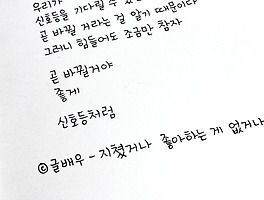 우리가
신호등을 기다릴 수 있는
곧 바뀔 거라는 걸 알기 때문이다
그러니 힘들어도 조금만 참자
곧 바뀔거야
좋게
신호등처럼
©글배우 - 지쳤거나 좋아하는 게 없거나